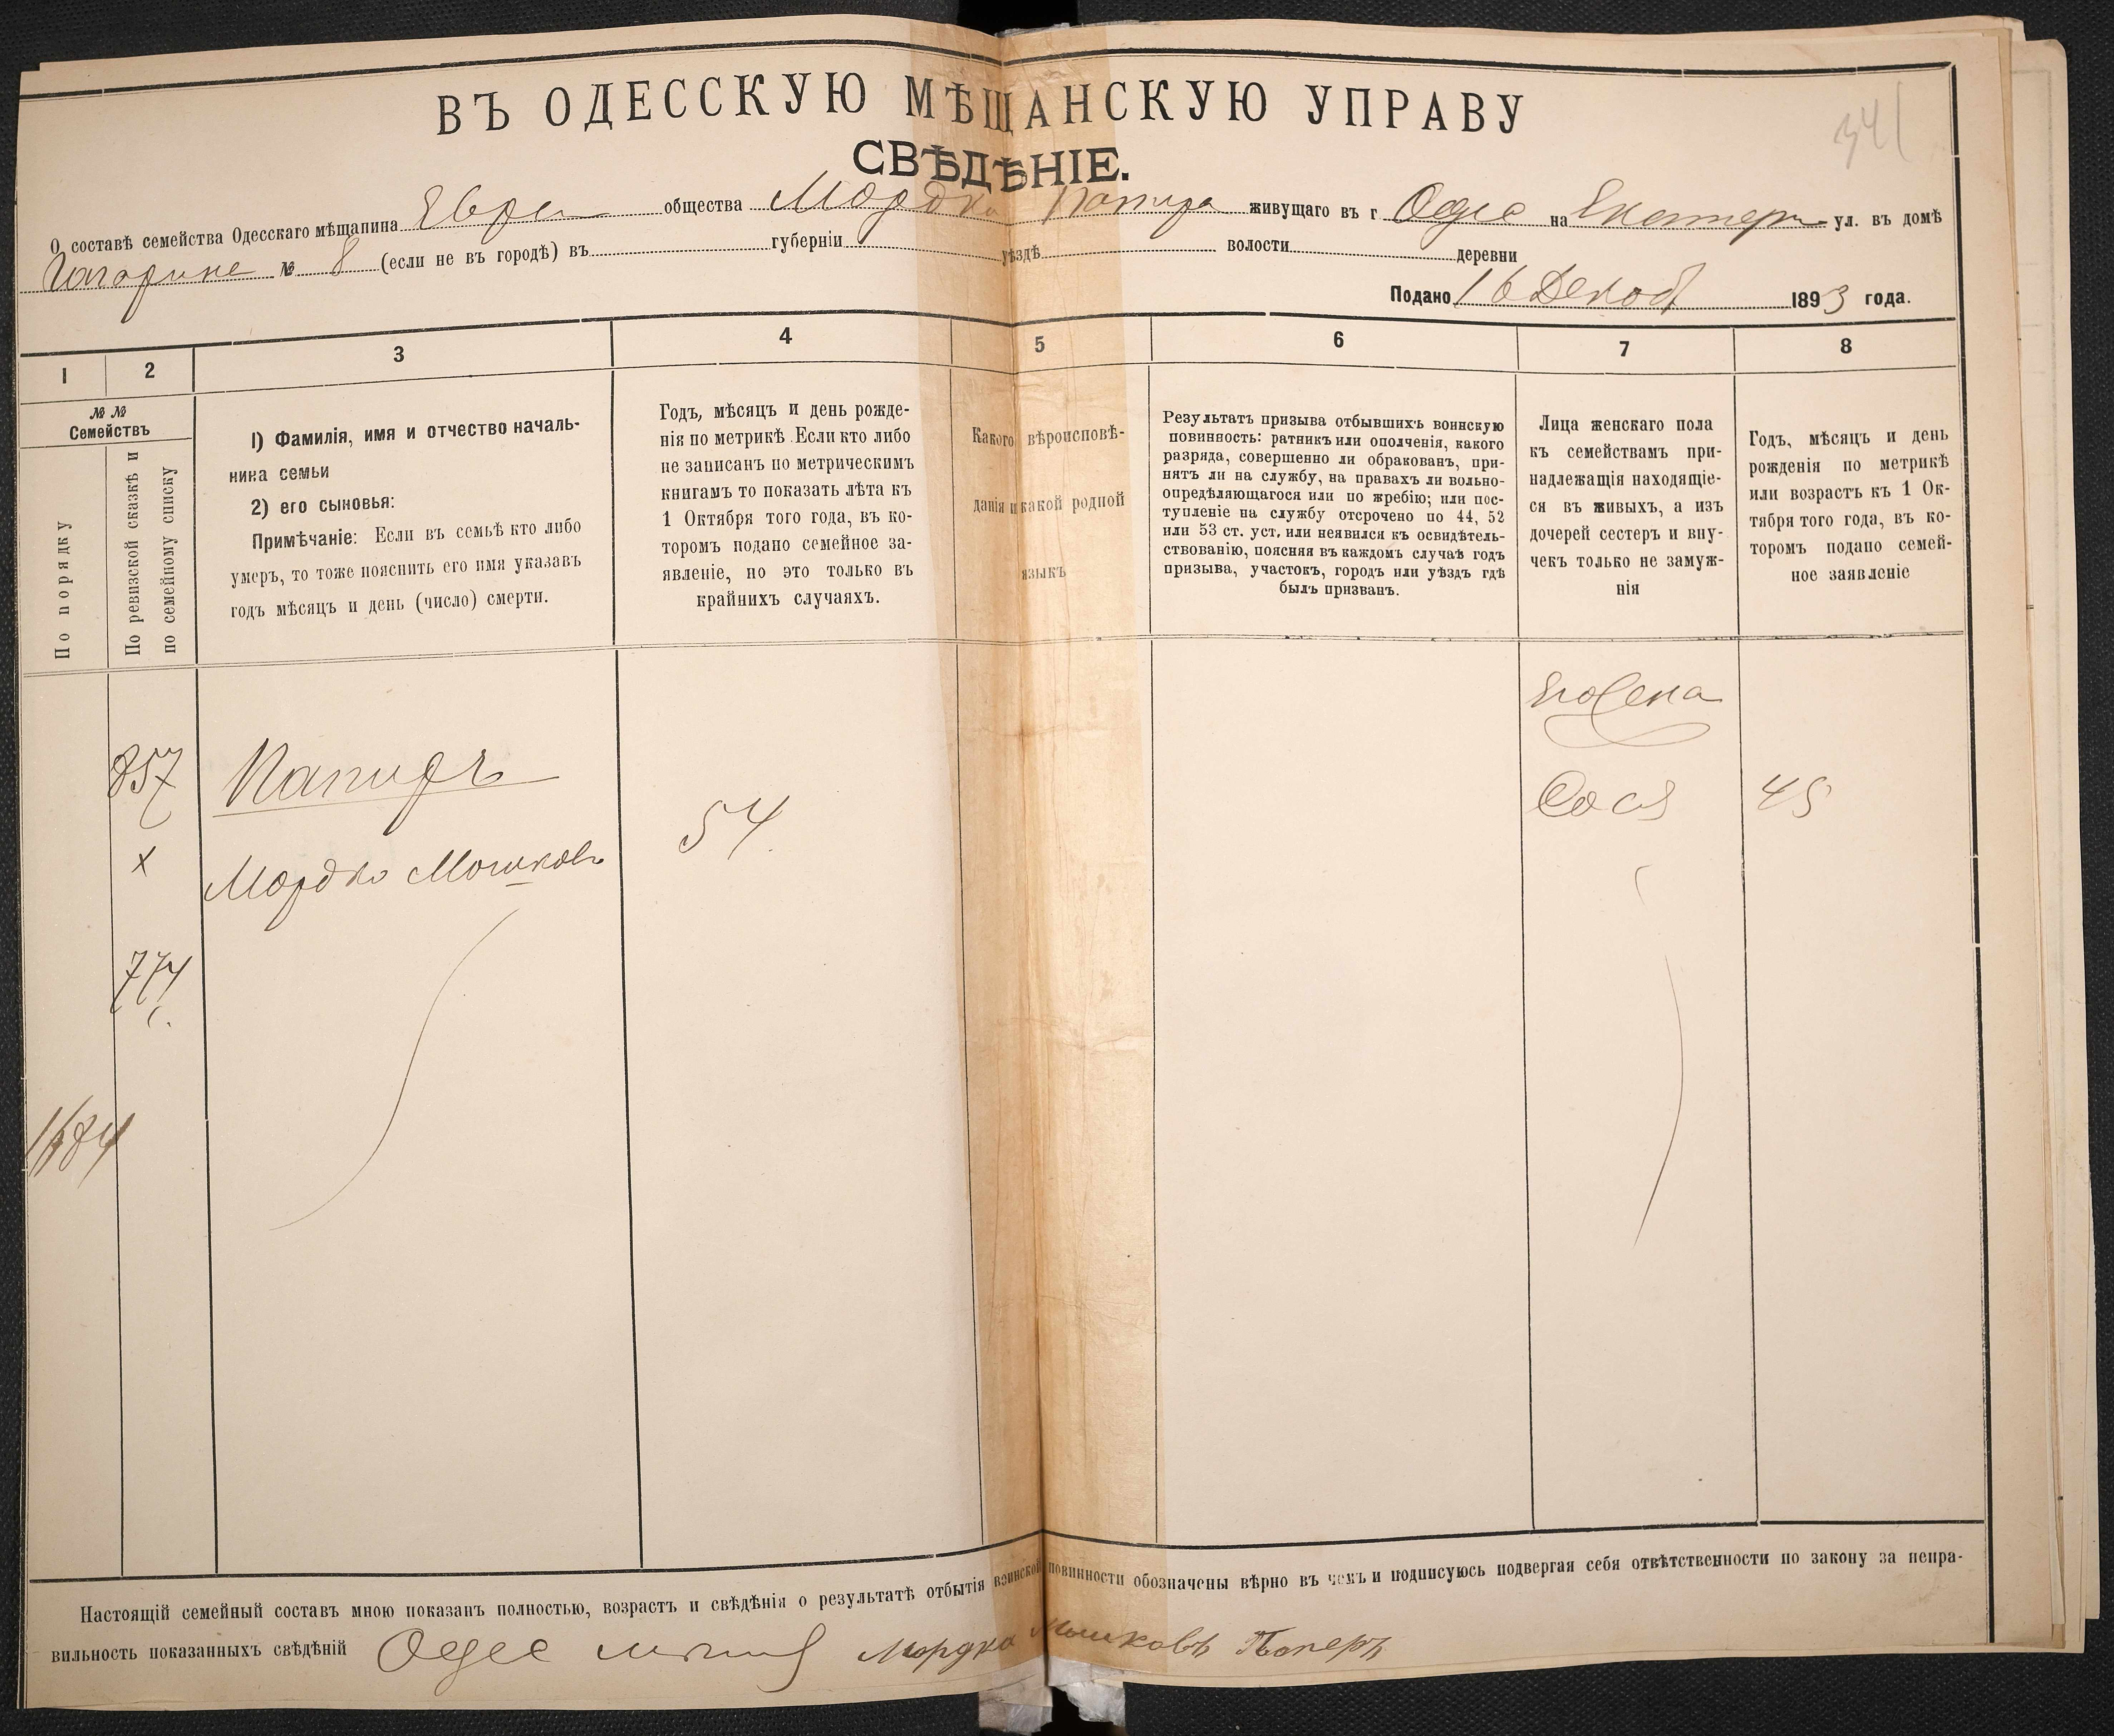 ВЪ ОДЕССКУЮ МѢЩАНСКУЮ УПРАВУ
341
СВѢДѢНІЕ.
О составѣ семейства Одесскаго мѣщанина Евреи общества Мордко Папира живущаго въ г Одес на Екатер ул. въ домѣ
Гагарине № 8 (если не въ городѣ) въ губерніи уѣздѣ волости деревни
Подано 16 Декаб 1893 года.
1 2 3 4 5 6 7 8
№ № Семействъ
По порядку
По ревизской сказкѣ и
по семейному списку
1) Фамилія, имя и отчество началь-
ника семьи
2) его сыновья:
Примѣчаніе: Если въ семьѣ кто либо
умеръ, то тоже пояснить его имя указавъ
годъ мѣсяцъ и день (число) смерти.
Годъ, мѣсяцъ и день рожде-
нія по метрикѣ. Если кто либо
не записанъ по метрическимъ
книгамъ то показать лѣта къ
1 Октября того года, въ ко-
торомъ подано семейное за-
явленіе, но это только въ
крайнихъ случаяхъ.
Какого вѣроисповѣ-
данія и какой родной
языкъ
Результатъ призыва отбывшихъ воинскую
повинность: ратникъ или ополченія, какого
разряда, совершенно ли обракованъ, при-
нятъ ли на службу, на правахъ ли вольно-
опредѣляющагося или по жребію; или пос-
тупленіе на службу отсрочено по 44, 52
или 53 ст. уст. или неявился къ освидѣтель-
ствованію, поясняя въ каждомъ случаѣ годъ
призыва, участокъ, городъ или уѣздъ гдѣ
былъ призванъ.
Лица женскаго пола
къ семействамъ при-
надлежащія находящіе-
ся въ живыхъ, а изъ
дочерей сестеръ и вну-
чекъ только не замуж-
нія
Годъ, мѣсяцъ и день
рожденія по метрикѣ
или возрастъ къ 1 Ок-
тября того года, въ ко-
торомъ подано семей-
ное заявленіе
Его жена
857 Папиръ Сося 45
х Мордко Мошковъ 54.
774
1684
Настоящій семейный составъ мною показанъ полностью, возрастъ и свѣдѣнія о результатѣ отбытія воинской повинности обозначены вѣрно въ чемъ и подписуюсь подвергая себя отвѣтственности по закону за непра-
вильность показанныхъ свѣдѣній Одес Мордко Мошковъ Паперъ